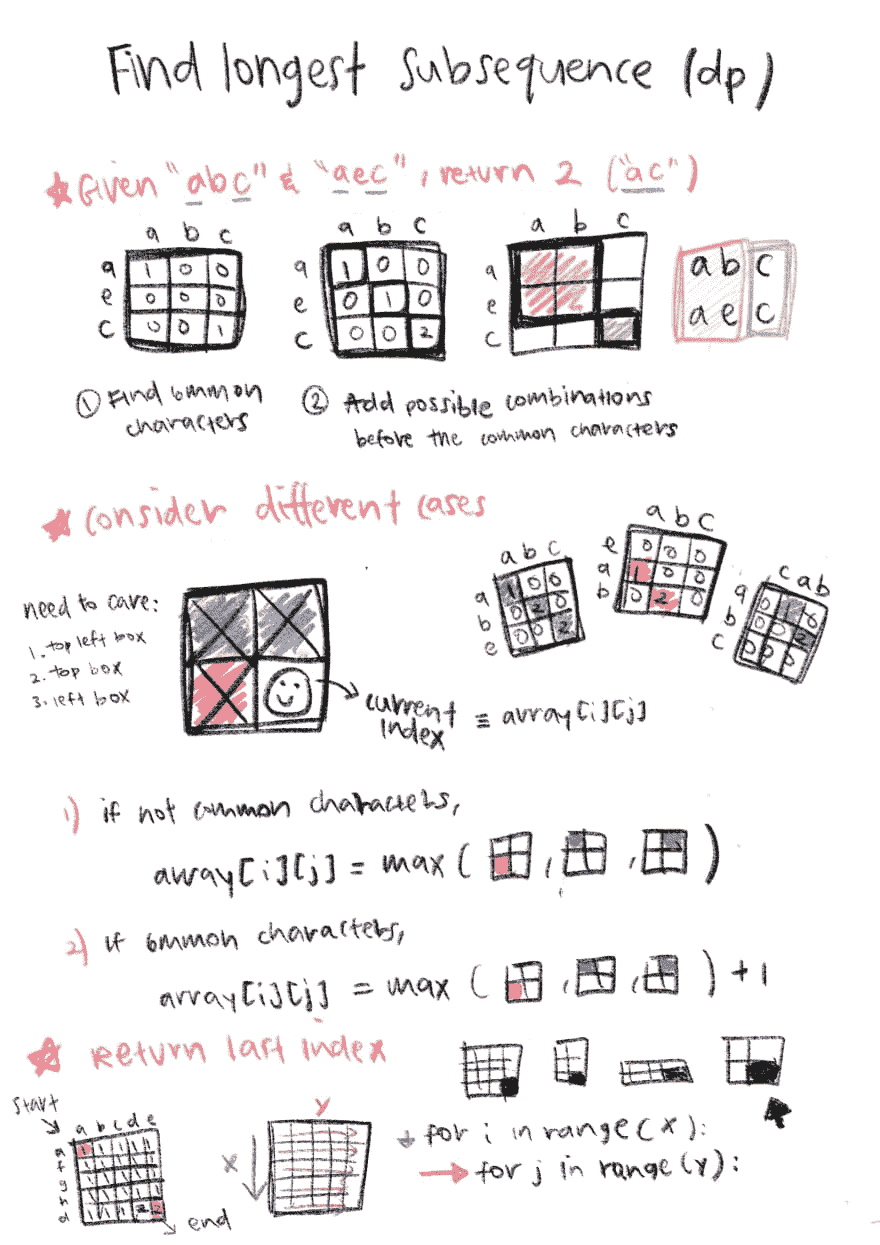 Find longest subsequence (dp)
Given "abc" & "aec", return 2 ("ac")
a b c
a 1 0 0
e 0 0 0
c 0 0 1
a b c
a 1 0 0
e 0 1 0
c 0 0 2
a b c
a
e
c
a b c
a e c
① Find common
characters
② Add possible combinations
before the common characters
consider different cases
need to care:
1. top left box
2. top box
3. left box
current
index ≡ array[i][j]
a b c
a 1 0 0
b 0 2 0
e 0 0 2
a b c
e 0 0 0
a 1 0 0
b 0 2 0
c a b
a 0 1 0
b 0 0 2
c 0 0 0
1) if not common characters,
array[i][j] = max ( , , )
2) if common characters,
array[i][j] = max ( , , ) + 1
Return last index
start
a b c d e
a 1 1 1 1 1
f 1 1 1 1 1
g 1 1 1 1 1
h 1 1 1 1 1
d 1 1 1 2 2
end
Y
X
for i in range(x):
for j in range(y):